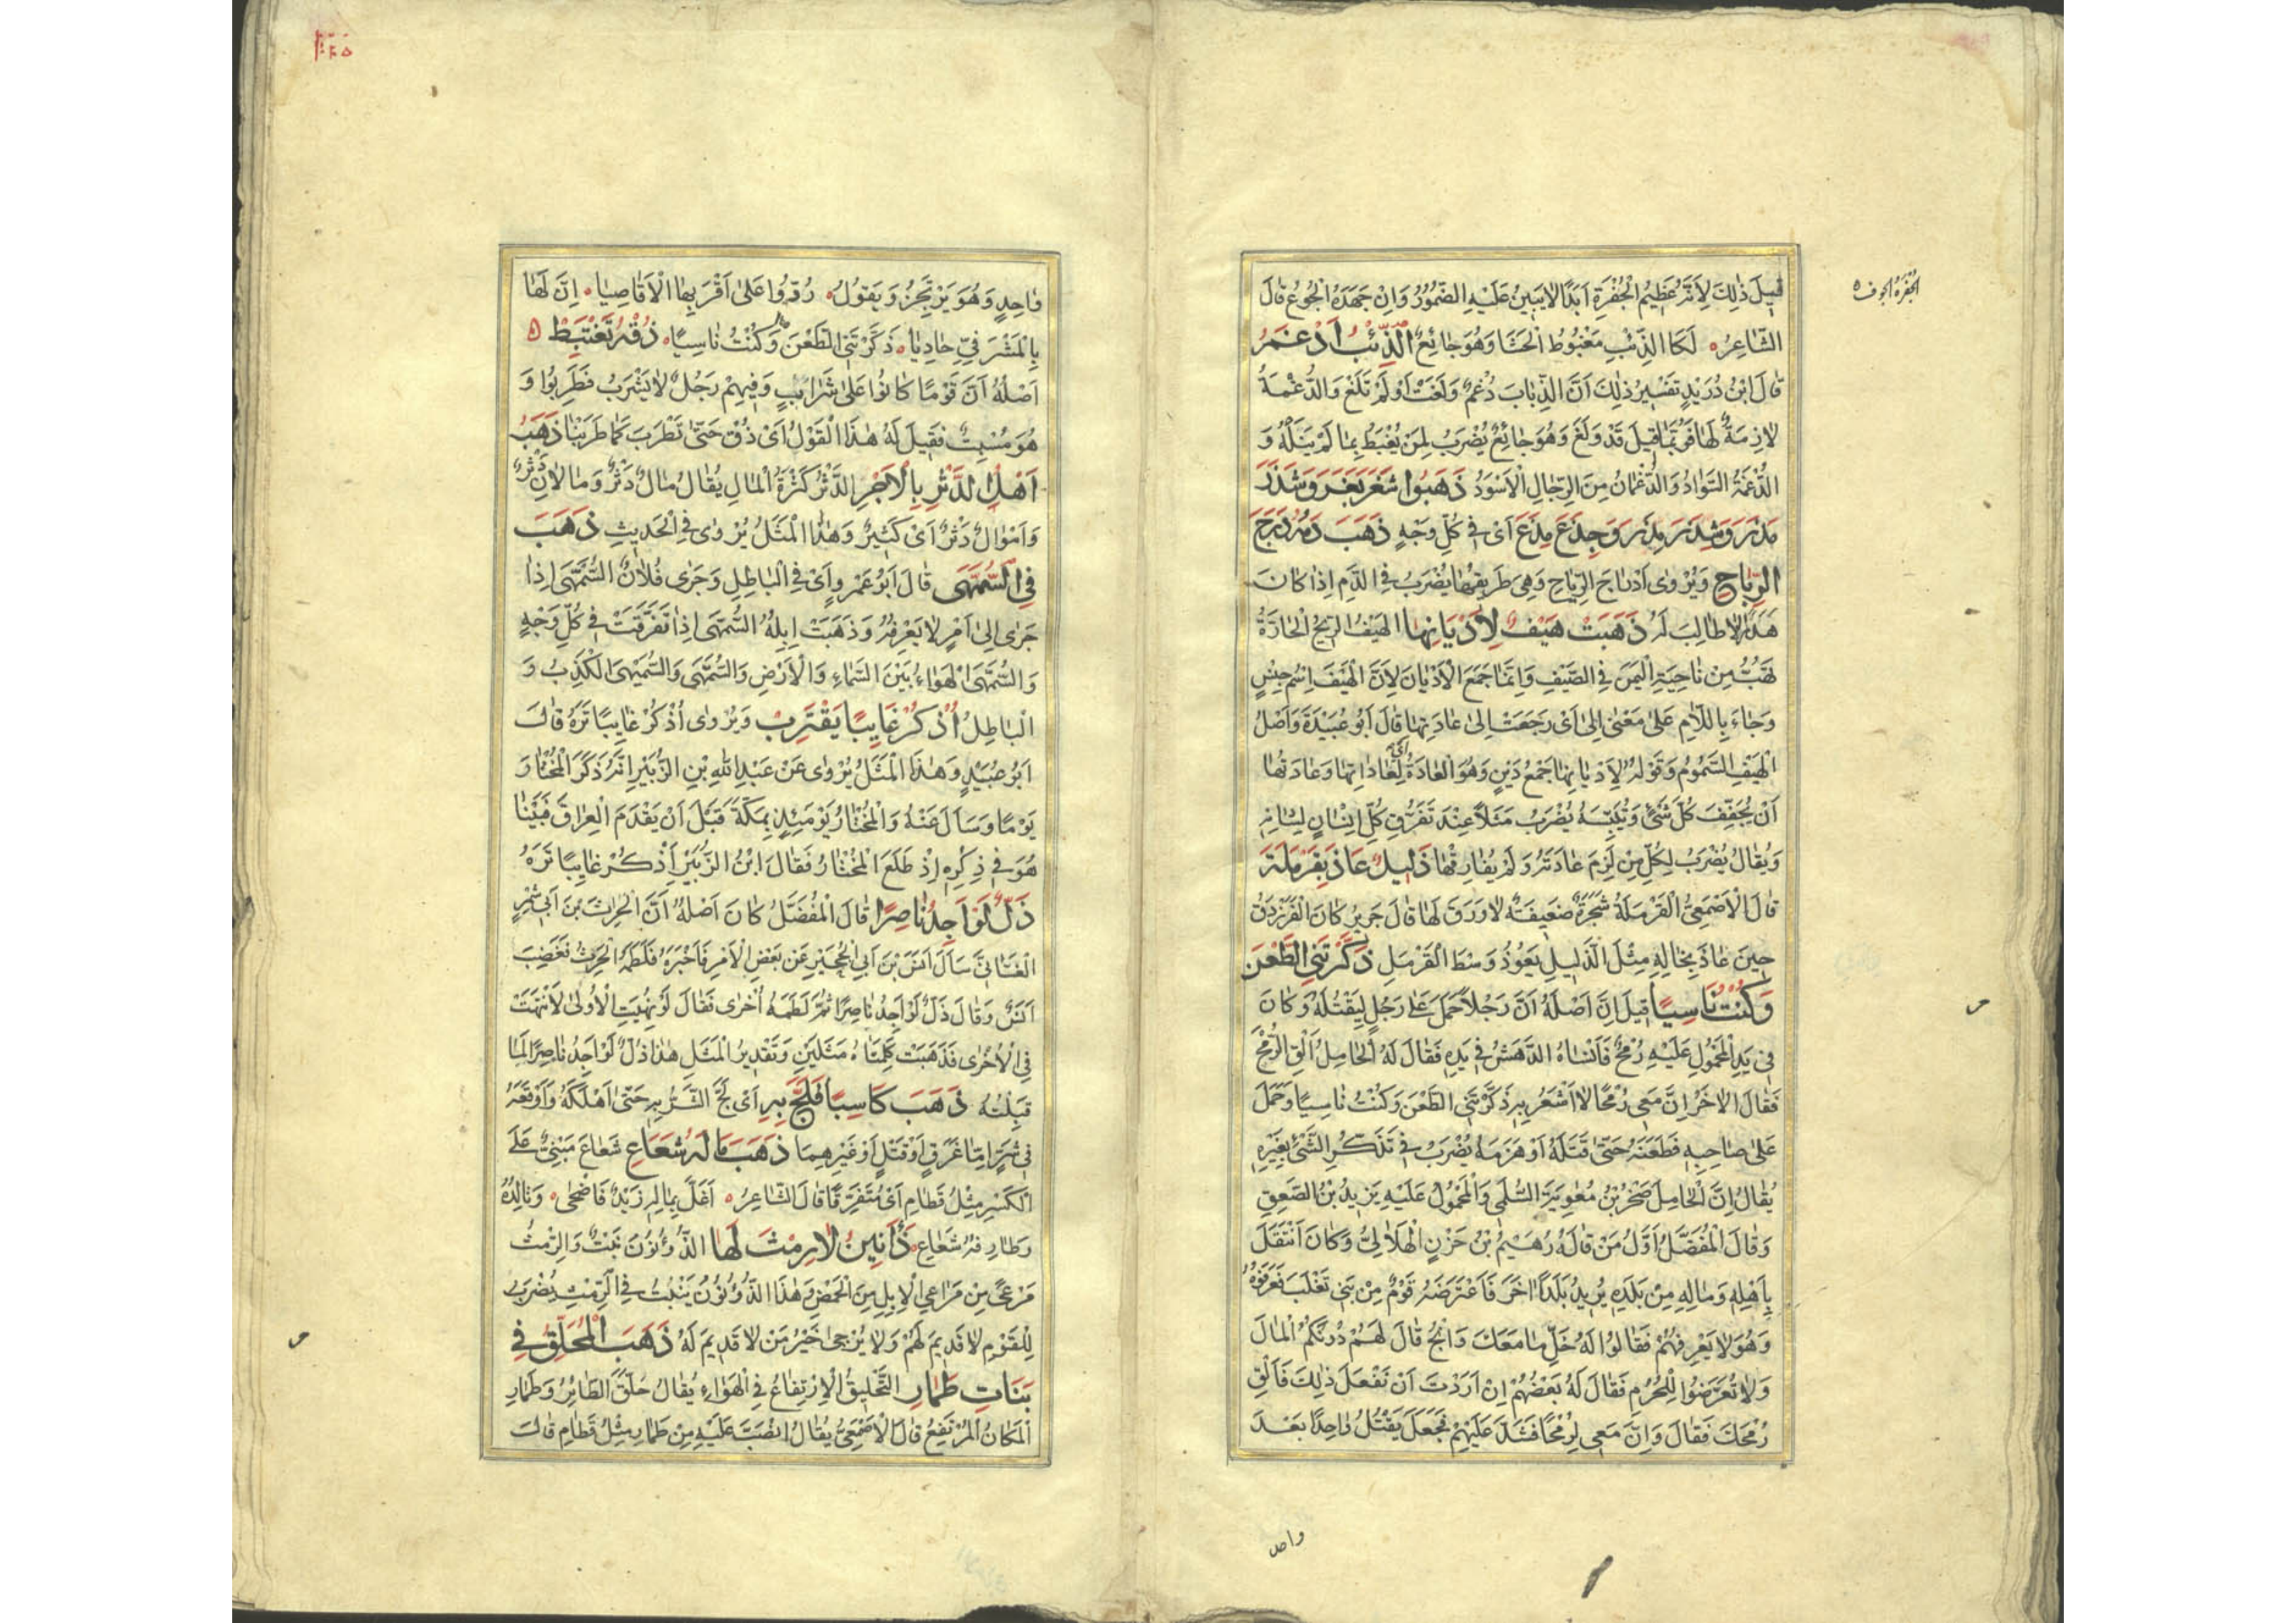 قِيلَ ذٰلِكَ لِاَنَّهُ عَظِيمُ الْجُفْرَةِ اَبَدًا لَا يَبِينُ عَلَيْهِ الضُّمُورُ وَاِنْ جَهَدَهُ الْجُوعُ قَالَ
الجُفْرَةُ الجوف
الشَّاعِرُ لَكَا الذِّئْبِ مَغْبُوطُ الْحَشَا وَهُوَ جَائِعٌ الذِّئْبُ اَدْغَمُ
قَالَ ابْنُ دُرَيْدٍ تَفْسِيرُ ذٰلِكَ اَنَّ الذِّيَابَ دُغْمٌ وَلَغَتْ اَوْ لَمْ تَلَغْ وَالدُّغْمَةُ
لَازِمَةٌ لَهَا فَرُبَّمَا قِيلَ قَدْ وَلَغَ وَهُوَ جَائِعٌ يُضْرَبُ لِمَنْ يُغْبَطُ بِمَا لَمْ يَنَلْهُ وَ
الدُّغْمَةُ السَّوَادُ وَالدُّغْمَانُ مِنَ الرِّجَالِ الْاَسْوَدُ ذَهَبُوا شَغَرَ بَغَرَ وَشَذَرَ
مَذَرَ وَشِذَرَ مِذَرَ وَجِذَعَ مِذَعَ اَىْ فِى كُلِّ وَجْهٍ ذَهَبَ دَمُهُ دَرَجَ
الرِّيَاحِ وَيُرْوٰى اَدْرَاجَ الرِّيَاحِ وَهِىَ طَرِيقُهَا يُضْرَبُ فِى الدَّمِ اِذَا كَانَ
هَدَرًا لَا طَالِبَ لَهُ ذَهَبَتْ هَيْفٌ لِاَدْيَانِهَا الْهَيْفُ الرِّيحُ الْحَارَّةُ
تَهُبُّ مِنْ نَاحِيَةِ الْيَمَنِ فِى الصَّيْفِ وَاِنَّمَا جَمَعَ الْاَدْيَانَ لِاَنَّ الْهَيْفَ اِسْمُ جِنْسٍ
وَجَاءَ بِاللَّامِ عَلٰى مَعْنٰى اِلٰى اَىْ رَجَعَتْ اِلٰى عَادَتِهَا قَالَ اَبُو عُبَيْدَةَ وَاَصْلُ
الْهَيْفِ السَّمُومُ وَقَوْلُهُ لِاَدْيَانِهَا جَمْعُ دِينٍ وَهُوَ الْعَادَةُ اَىْ لِعَادَاتِهَا وَعَادَتُهَا
اَنْ تُجَفِّفَ كُلَّ شَىْءٍ وَتُيَبِّسَهُ يُضْرَبُ مَثَلًا عِنْدَ تَفَرُّقِ كُلِّ اِنْسَانٍ لِشَانِهِ
وَيُقَالُ يُضْرَبُ لِكُلِّ مَنْ لَزِمَ عَادَتَهُ وَلَمْ يُفَارِقْهَا ذَلِيلٌ عَاذَ بِقَرْمَلَةَ
قَالَ الْاَصْمَعِىُّ الْقَرْمَلَةُ شَجَرَةٌ ضَعِيفَةٌ لَا وَرَقَ لَهَا قَالَ جَرِيرٌ كَانَ الْفَرَزْدَقُ
حِينَ عَاذَ بِخَالِهِ مِثْلَ الذَّلِيلِ يَعُوذُ وَسْطَ الْقَرْمَلِ ذَكَّرْتَنِى الطَّعْنَ
وَكُنْتُ نَاسِيًا قِيلَ اِنَّ اَصْلَهُ اَنَّ رَجُلًا حَمَلَ عَلٰى رَجُلٍ لِيَقْتُلَهُ وَكَانَ
فِى يَدِ الْمَحْمُولِ عَلَيْهِ رُمْحٌ فَاَنْسَاهُ الدَّهَشُ مَا فِى يَدِهِ فَقَالَ لَهُ الْحَامِلُ اَلْقِ الرُّمْحَ
فَقَالَ الْاٰخَرُ اِنَّ مَعِى رُمْحًا لَا اَشْعُرُ بِهِ ذَكَّرْتَنِى الطَّعْنَ وَكُنْتُ نَاسِيًا وَحَمَلَ
عَلٰى صَاحِبِهِ فَطَعَنَهُ حَتّٰى قَتَلَهُ اَوْ هَزَمَهُ يُضْرَبُ فِى تَذَكُّرِ الشَّىْءِ بِغَيْرِهِ
يُقَالُ اِنَّ الْحَامِلَ صَخْرُ بْنُ مُعٰوِيَةَ السُّلَمِى وَالْمَحْمُولُ عَلَيْهِ يَزِيدُ بْنُ الصَّعِقِ
وَقَالَ الْمُفَضَّلُ اَوَّلُ مَنْ قَالَهُ رُهَيْمُ بْنُ حَزْنٍ الْهِلَالِىُّ وَكَانَ اَنْتَقَلَ
بِاَهْلِهِ وَمَالِهِ مِنْ بَلَدِهِ يُرِيدُ بَلَدًا اٰخَرَ فَاعْتَرَضَهُ قَوْمٌ مِنْ بَنِى تَغْلَبَ فَعَرَفُوهُ
وَهُوَ لَا يَعْرِفُهُمْ فَقَالُوا لَهُ خَلِّ مَا مَعَكَ وَانْجُ قَالَ لَهُمْ دُونَكُمُ الْمَالَ
وَلَا تَعَرَّضُوا لِلْحُرَمِ فَقَالَ لَهُ بَعْضُهُمْ اِنْ اَرَدْتَ اَنْ نَفْعَلَ ذٰلِكَ فَاَلْقِ
رُمْحَكَ فَقَالَ وَاِنَّ مَعِى لَرُمْحًا فَشَدَّ عَلَيْهِمْ فَجَعَلَ يَقْتُلُ وَاحِدًا بَعْدَ
واحد
وَاحِدٍ وَهُوَ يَرْتَجِزُ وَيَقُولُ رُدُّوا عَلٰى اَقْرَبِهَا الْاَقَاصِيَا اِنَّ لَهَا
بِالْمَشْرَفِىِّ حَادِيَا ذَكَّرْتَنِى الطَّعْنَ وَكُنْتُ نَاسِيًا ذُقْهُ تَغْتَبِطْ
اَصْلُهُ اَنَّ قَوْمًا كَانُوا عَلٰى شَرَابٍ وَفِيهِمْ رَجُلٌ لَا يَشْرَبُ فَطَرِبُوا وَ
هُوَ مُسْبِتٌ فَقِيلَ لَهُ هٰذَا الْقَوْلُ اَىْ ذُقْ حَتّٰى تَطْرَبَ كَمَا طَرِبْنَا ذَهَبَ
اَهْلُ الدَّثْرِ بِالْاَجْرِ الدَّثْرُ كَثْرَةُ الْمَالِ يُقَالُ مَالٌ دَثْرٌ وَمَالَانِ دَثْرٌ
وَاَمْوَالٌ دَثْرٌ اَىْ كَثِيرٌ وَهٰذَا الْمَثَلُ يُرْوٰى فِى الْحَدِيثِ ذَهَبَ
فِى السُّمَّهَى قَالَ اَبُو عَمْرٍو اَىْ فِى الْبَاطِلِ وَجَرٰى فُلَانٌ السُّمَّهَى اِذَا
جَرٰى اِلٰى اَمْرٍ لَا يَعْرِفُهُ وَذَهَبَتْ اِبِلُهُ السُّمَّهَى اِذَا تَفَرَّقَتْ فِى كُلِّ وَجْهٍ
وَالسُّمَّهَى الْهَوَاءُ بَيْنَ السَّمَاءِ وَالْاَرْضِ وَالسُّمَّهَى وَالسُّمَّيْهَى الْكَذِبُ وَ
الْبَاطِلُ اُذْكُرْ غَايِبًا يَقْتَرِبْ وَيُرْوٰى اُذْكُرْ غَايِبًا تَرَهُ قَالَ
اَبُو عُبَيْدٍ وَهٰذَا الْمَثَلُ يُرْوٰى عَنْ عَبْدِ اللهِ بْنِ الزُّبَيْرِ اِنَّهُ ذَكَرَ الْمُخْتَارَ
يَوْمًا وَسَاَلَ عَنْهُ وَالْمُخْتَارُ يَوْمَئِذٍ بِمَكَّةَ قَبْلَ اَنْ يَقْدَمَ الْعِرَاقَ فَبَيْنَا
هُوَ فِى ذِكْرِهِ اِذْ طَلَعَ الْمُخْتَارُ فَقَالَ ابْنُ الزُّبَيْرِ اُذْكُرْ غَايِبًا تَرَهُ
ذَلَّ لَوْ اَجِدُ نَاصِرًا قَالَ الْمُفَضَّلُ كَانَ اَصْلُهُ اَنَّ الْحٰرِثَ بْنَ اَبِى شَمِرٍ
الْغَسَّانِىَّ سَاَلَ اَنَسَ بْنَ اَبِى الْحُجَيْرِ عَنْ بَعْضِ الْاَمْرِ فَاَخْبَرَهُ فَلَطَمَهُ الْحٰرِثُ فَغَضِبَ
اَنَسٌ وَقَالَ ذَلَّ لَوْ اَجِدُ نَاصِرًا ثُمَّ لَطَمَهُ اُخْرٰى فَقَالَ لَوْ نُهِيَتِ الْاُولٰى لَانْتَهَتْ
فِى الْاُخْرٰى فَذَهَبَتْ كَلِمَتَاهُ مَثَلَيْنِ وَتَقْدِيرُ الْمَثَلِ هٰذَا ذُلٌّ لَوْ اَجِدُ نَاصِرًا لَمَا
قَبِلْتُهُ ذَهَبَ كَاسِبًا فَلَجَّ بِهِ اَىْ لَجَّ الشَّرُّ بِهِ حَتّٰى اَهْلَكَهُ وَاَوْقَعَهُ
فِى شَرٍّ اِمَّا غَرَقٍ اَوْ قَتْلٍ اَوْ غَيْرِهِمَا ذَهَبَ مَالُهُ شَعَاعِ شَعَاعَ مَبْنِىٌّ عَلَى
الْكَسْرِ مِثْلُ قَطَامِ اَىْ مُتَفَرِّقًا قَالَ الشَّاعِرُ اَغَلَّ بِمَالِهِ زَيْدٌ فَاَضْحٰى وَتَالِدُهُ
وَطَارِفُهُ شَعَاعِ ذَاٰنِينُ لَا رِمْثَ لَهَا الذُّؤْنُونُ نَبْتٌ وَالرِّمْثُ
مَرْعًى مِنْ مَرَاعِى الْاِبِلِ مِنَ الْحَمْضِ وَهٰذَا الذُّؤْنُونُ يَنْبُتُ فِى الرِّمْثِ يُضْرَبُ
لِلْقَوْمِ لَا قَدِيمَ لَهُمْ وَلَا يُرْجٰى خَيْرُ مَنْ لَا قَدِيمَ لَهُ ذَهَبَ الْمُحَلِّقُ فِى
بَنَاتِ طَمَارِ التَّحْلِيقُ الْاِرْتِفَاعُ فِى الْهَوَاءِ يُقَالُ حَلَّقَ الطَّائِرُ وَطَمَارِ
الْمَكَانُ الْمُرْتَفِعُ قَالَ الْاَصْمَعِىُّ يُقَالُ انْصَبَّ عَلَيْهِ مِنْ طَمَارِ مِثْلُ قَطَامِ قَالَ